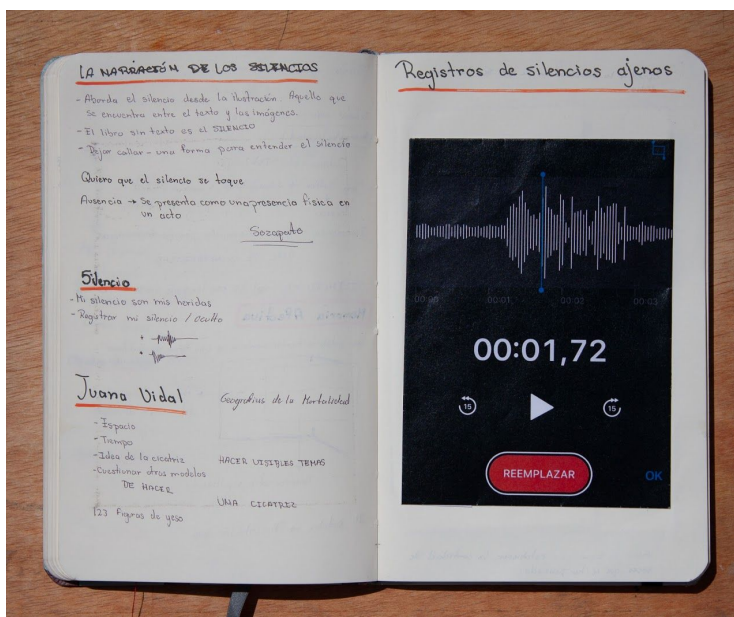 LA NARRACIÓN DE LOS SILENCIOS
- Aborda el silencio desde la ilustración. Aquello que
se encuentra entre el texto y las imágenes.
- El libro sin texto es el SILENCIO
- Dejar callar - una forma para entender el silencio
Quiero que el silencio se toque
Ausencia → Se presenta como una presencia física en
un acto
Silencio
- Mi silencio son mis heridas
- Registrar mi silencio / oculto
Juana Vidal
Geografías de la Mortalidad
- Espacio
- Tiempo
- Idea de la cicatriz
HACER VISIBLES TEMAS
- Cuestionar otros modelos
DE HACER
UNA CICATRIZ
123 Figuras de yeso
Registros de silencios ajenos
00:00 00:01 00:02 00:03
00:01,72
15 15
REEMPLAZAR
OK